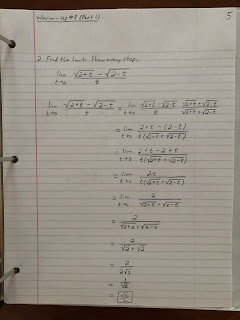 Warm-Up #3 (Part 1)
5
2. Find the limit. Show every step.
lim t→0 (√2+t − √2-t)/t
lim t→0 (√2+t − √2-t)/t = lim t→0 (√2+t − √2-t)/t · (√2+t + √2-t)/(√2+t + √2-t)
= lim t→0 (2+t − (2-t))/(t(√2+t + √2-t))
= lim t→0 (2+t-2+t)/(t(√2+t + √2-t))
= lim t→0 2t/(t(√2+t + √2-t))
= lim t→0 2/(√2+t + √2-t)
= 2/(√2+0 + √2-0)
= 2/(√2+√2)
= 2/(2√2)
= 1/√2
= √2/2